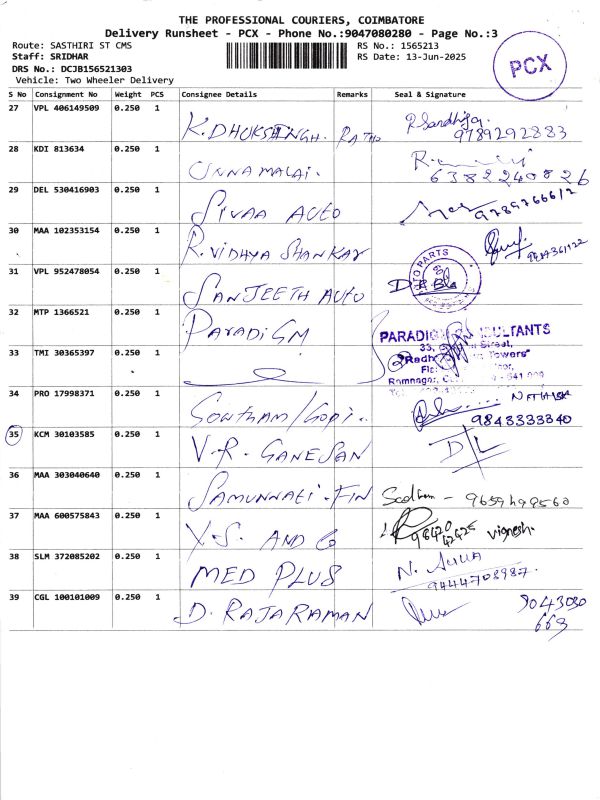 THE PROFESSIONAL COURIERS, COIMBATORE
Delivery Runsheet - PCX - Phone No.:9047080280 - Page No.:3
Route: SASTHIRI ST CMS
RS No.: 1565213
Staff: SRIDHAR
RS Date: 13-Jun-2025
DRS No.: DCJB156521303
Vehicle: Two Wheeler Delivery
PCX
S No Consignment No Weight PCS Consignee Details Remarks Seal & Signature
27 VPL 406149509 0.250 1 K.DHUKSHINGH. RATHO
9789292883
28 KDI 813634 0.250 1 UNNAMALAI.
6382240826
29 DEL 530416903 0.250 1 SIVAA AUTO
30 MAA 102353154 0.250 1 R.VIDHYA SHANKAR
31 VPL 952478054 0.250 1 SANJEETH AUTO
AUTO PARTS
32 MTP 1366521 0.250 1 PARADIGM
PARADIG SULTANTS
33, Street,
"Radh Towers"
33 TMI 30365397 0.250 1
Ramnagar,
34 PRO 17998371 0.250 1 GOWTHAM/GOPI..
9843333340
35 KCM 30103585 0.250 1 V.R. GANESAN D/L
36 MAA 303040640 0.250 1 SAMUNNATI-FIN
37 MAA 600575843 0.250 1 Y.S. AND Co
98420
42425 vignesh.
38 SLM 372085202 0.250 1 MED PLUS
9444708987.
39 CGL 100101009 0.250 1 D. RAJARAMAN
9043030
669